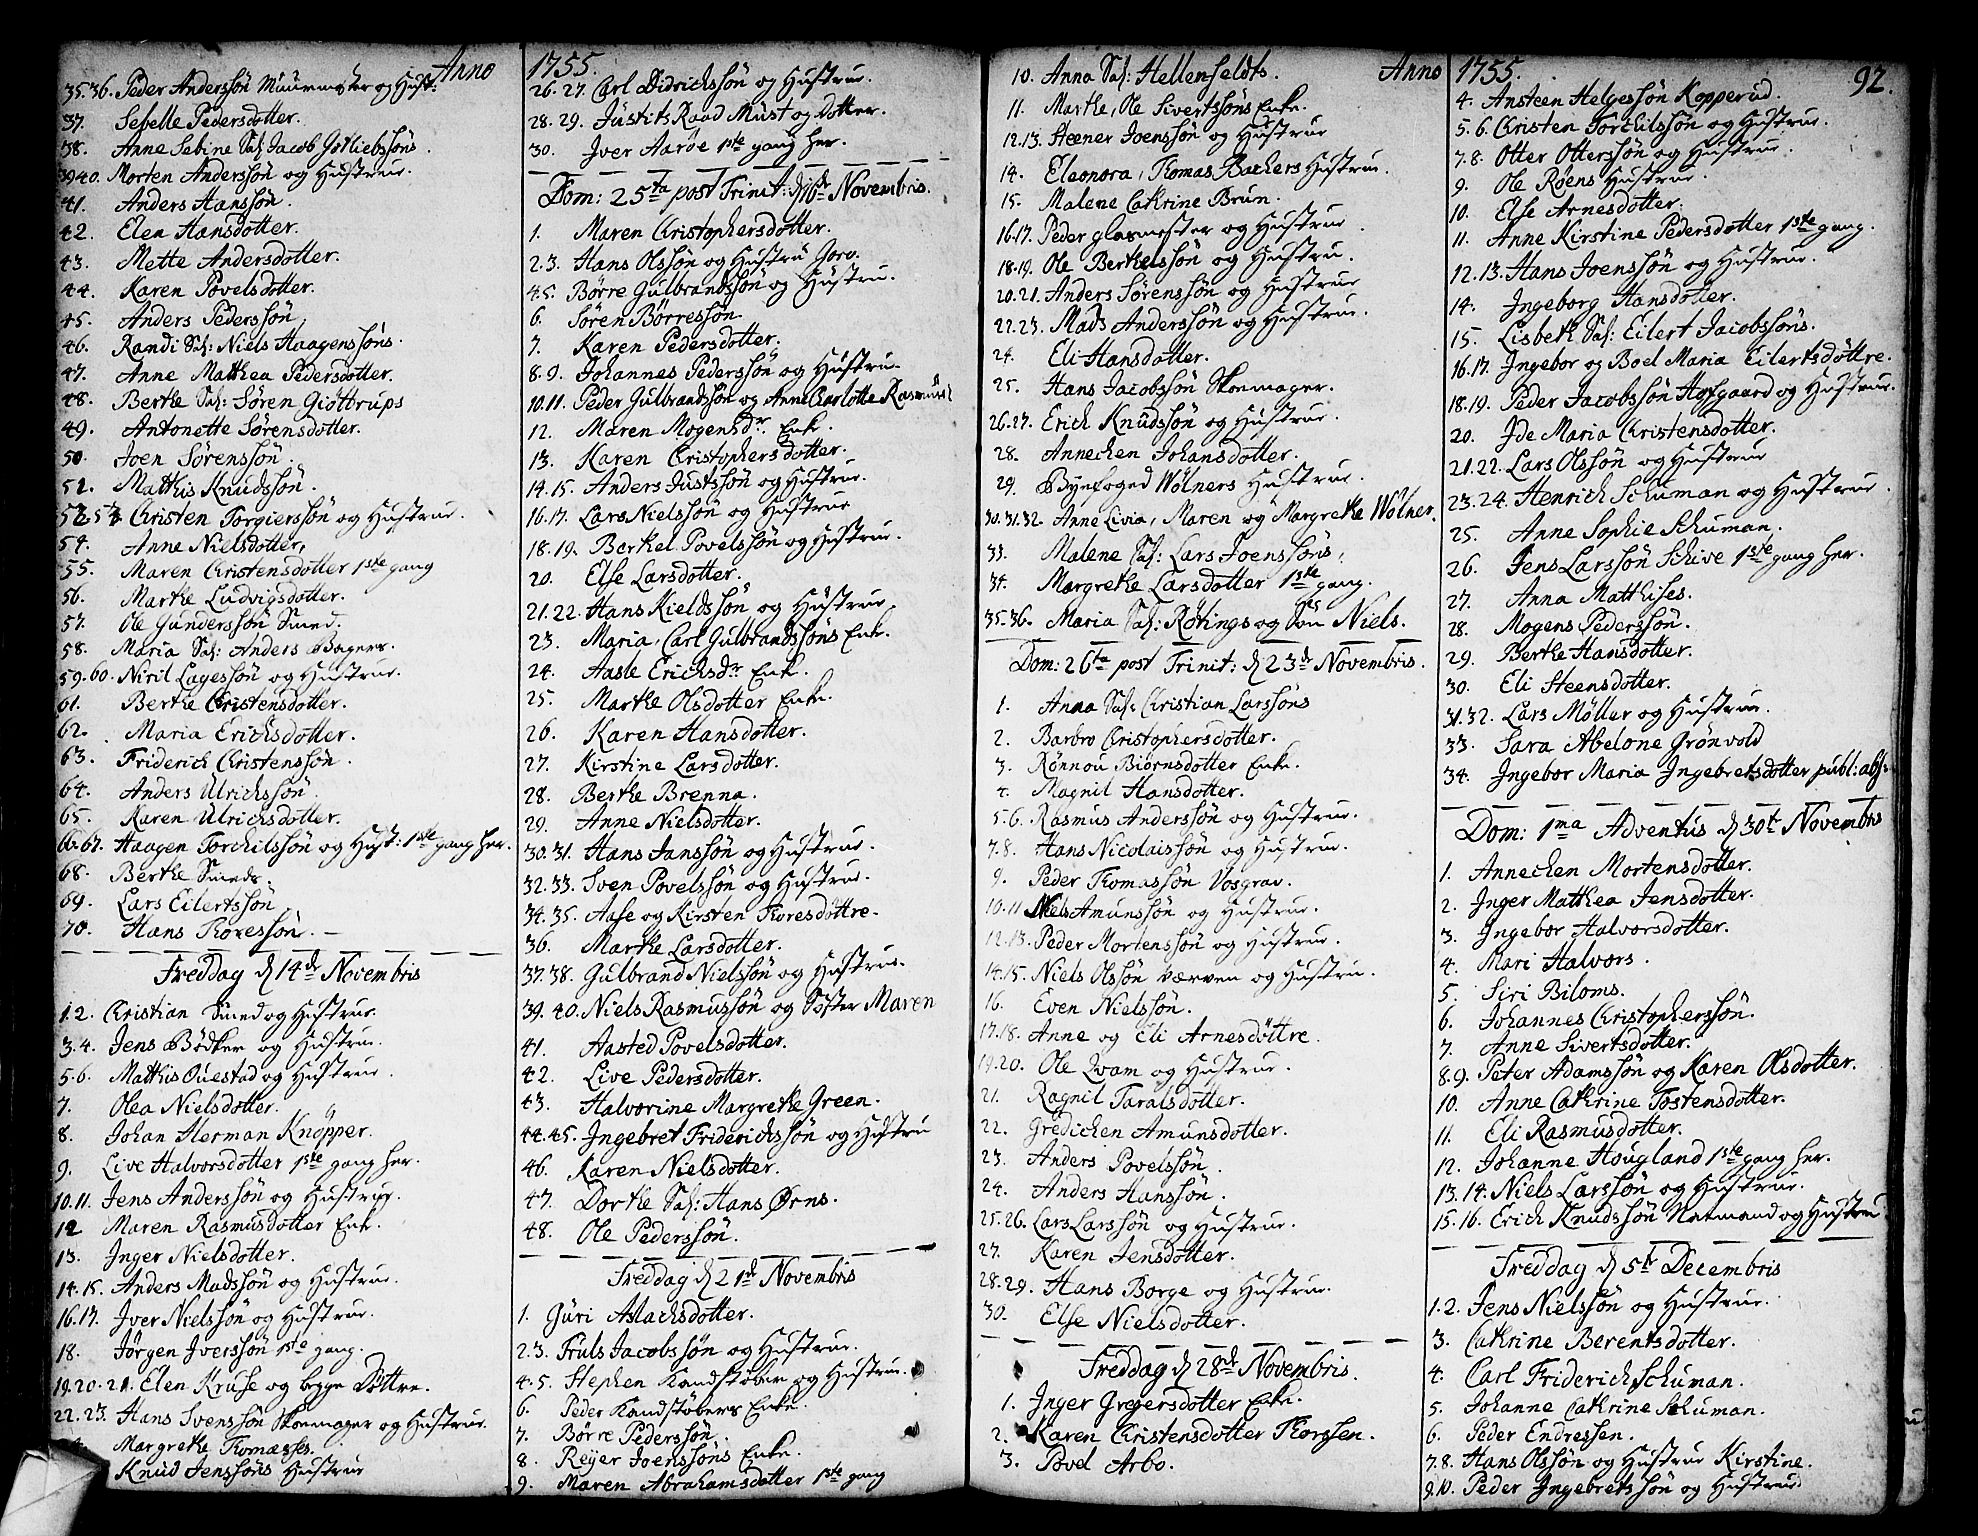 Anno 1755.
35.36. Peder Anderssön Muurmester og Hust:
37. Sefelle Pedersdotter.
38. Anne Sebine Sal: Jacob Gotliebssöns.
39.40. Morten Anderssön og Hustrue.
41. Anders Hanssön.
42. Elen Hansdotter.
43. Mette Andersdotter.
44. Karen Povelsdotter.
45. Anders Pederssön.
46. Randi Sal: Niels Haagenssöns.
47. Anne Mathea Pedersdotter.
48. Berthe Sal: Sören Giöttrups
49. Antonette Sörensdotter.
50. Joen Sörenssön.
51. Matthis Knudssön.
52.53. Christen Torgierssön og Hustrue.
54. Anne Nielsdotter,
55. Maren Christensdotter 1ste gang
56. Marthe Ludvigsdotter.
57. Ole Gunderssön Smed.
58. Maria Sal: Anders Bagers.
59.60. Niril Lagessön og Hustrue.
61. Berthe Christensdotter.
62. Maria Erichsdotter.
63. Friderich Christenssön.
64. Anders Ulrichssön.
65. Karen Ulrichsdotter.
66.67. Haagen Torchilssön og Hust: 1ste gang her.
68. Berthe Smeds.
69. Lars Eilertssön
70. Hans Thoressön.
Freddag d 14de Novembris
1.2. Christian Smed og Hustrue.
3.4. Jens Bödker og Hustrue.
5.6. Matthis Ouestad og Hustrue.
7. Olea Nielsdotter.
8. Johan Herman Knöpper.
9. Live Halvorsdotter 1ste gang her.
10.11. Jens Anderssön og Hustrue.
12 Maren Rasmusdotter Enke.
13. Inger Nielsdotter.
14.15. Anders Madssön og Hustrue.
16.17. Jver Nielssön og Hustrue.
18. Jörgen Jverssön 1ste gang.
19.20.21. Elen Kruse og begge Döttre.
22.23. Hans Svenssön Skoemager og Hustrue.
Margrethe Thomasses.
Knud Jenssöns Hustrue
26.27. Carl Didrichssön og Hustrue.
28.29. Justits Raad Must og Dotter.
30. Jver Aaröe 1ste gang her.
Dom: 25ta post Trinit: d 16de Novembris.
1. Maren Christophersdotter.
2.3. Hans Olssön og Hustru Goro.
4.5. Börre Gulbrandssön og Hustrue.
6. Sören Börressön
7. Karen Pedersdotter.
8.9. Johannes Pederssön og Hustrue
10.11. Peder Gulbrandssön og Anne Charlotte Rasmus:
12. Maren Mogensdr. Enke.
13. Karen Christophersdotter.
14.15. Anders Justssön og Hustrue.
16.17. Lars Nielssön og Hustrue
18.19. Berthel Povelssön og Hustrue.
20. Else Larsdotter.
21.22. Hans Kieldssön og Hustrue
23. Maria, Carl Gulbrandssöns Enke.
24. Aasle Erichsdr Enke.
25. Marthe Olsdotter Enke.
26. Karen Hansdotter.
27. Kirstine Larsdotter.
28. Berthe Brenna.
29. Anne Nielsdotter.
30.31. Hans Janssön og Hustrue.
32.33. Sven Povelssön og Hustrue.
34.35. Aase og Kirsten Thoresdöttre.
36. Marthe Larsdotter.
37.38. Gulbrand Nielssön og Hustrue.
39.40. Niels Rasmussön og Söster Maren
41. Aasted Povelsdotter.
42. Live Pedersdotter.
43. Halvorine Margrethe Green.
44.45. Ingebret Friderichssön og Hustru
46. Karen Nielsdotter.
47. Dorthe Sal: Hans Ørns.
48. Ole Pederssön.
Freddag d 21de Novembris
1. Guri Aslachsdotter.
2.3. Truls Jacobssön og Hustrue.
4.5. Stephen Kandstöber og Hustrue.
6. Peder Kandstöbers Enke.
7. Börre Pederssön.
8. Reyer Joenssöns Enke.
9. Maren Abrahamsdotter 1ste gang
Anno 1755.
92.
10. Anna Sal: Hellenfeldts.
11. Marthe, Ole Sivertssöns Enke.
12.13. Steener Joenssön og Hustrue
14. Eleonora, Thomas Bachers Hustrue.
15. Malene Cathrine Brun.
16.17. Peder Glasmester og Hustrue
18.19. Ole Berthelssön og Hustru.
20.21. Anders Sörenssön og Hustrue
22.23. Mads Anderssön og Hustrue.
24. Eli Hansdotter.
25. Hans Jacobssön Skoemager.
26.27. Erich Knudssön og Hustrue
28. Annechen Johansdotter.
29. Byefoged Wölners Hustrue.
30.31.32. Anne Livia, Maren og Margrethe Wölner.
33. Malene Sal: Lars Joenssöns,
34. Margrethe Larsdotter 1ste gang.
35.36. Maria Sal: Rötings og Sön Niels.
Dom: 26ta post Trinit: d 23de Novembris.
1. Anna Sal: Christian Larssöns
2. Barbro Christophersdotter.
3. Rönnou Biörnsdotter Enke.
4. Magnil Hansdotter.
5.6. Rasmus Anderssön og Hustrue.
7.8. Hans Nicolaissön og Hustrue.
9. Peder Thomassön Vosgrav.
10.11 Niels Amunssön og Hustrue.
12.13. Peder Mortenssön og Hustrue.
14.15. Niels Olssön Værven og Hustrue.
16. Even Nielssön.
17.18. Anne og Eli Arnesdöttre.
19.20. Ole Qvam og Hustrue.
21. Ragnil Taralsdotter.
22. Gredichen Amunsdotter.
23. Anders Povelssön.
24. Anders Hanssön.
25.26. Lars Larssön og Hustrue.
27. Karen Jensdotter.
28.29. Hans Borge og Hustrue.
30. Else Nielsdotter.
Freddag d 28de Novembris.
1. Inger Gregersdotter Enke.
2. Karen Christensdotter Thorssen.
3. Povel Arbo.
4. Ansteen Helgessön Kopperud.
5.6. Christen Torchilssön og Hustrue.
7.8. Otter Otterssön og Hustrue.
9. Ole Röens Hustrue.
10. Else Arnesdotter.
11. Anne Kirstine Pedersdotter 1ste gang.
12.13. Hans Joenssön og Hustrue.
14. Ingeborg Hansdotter.
15. Lisbeth Sal: Eilert Jacobssöns.
16.17. Ingebor og Boel Maria Eilertsdöttre.
18.19. Peder Jacobssön Hofgaard og Hustrue.
20. Ide Maria Christensdotter.
21.22. Lars Olssön og Hustrue
23.24. Henrich Schuman og Hustrue
25. Anne Sophie Schuman.
26. Jens Larssön Schive 1ste gang her.
27. Anna Matthises.
28. Mogens Pederssön.
29. Berthe Hansdotter.
30. Eli Steensdotter.
31.32. Lars Möller og Hustrue.
33. Sara Abelone Grönvold
34. Ingebor Maria Ingebretsdotter publ: abs:
Dom: 1ma Adventus d 30te Novembris
1. Annechen Mortensdotter.
2. Inger Mathea Jensdotter.
3. Ingebor Halvorsdotter.
4. Mari Halvors.
5. Siri Biloms.
6. Johannes Christopherssön.
7. Anne Sivertsdotter.
8.9. Peter Adamssön og Karen Olsdotter.
10. Anne Cathrine Tostensdotter.
11. Eli Rasmusdotter.
12. Johanne Hougland 1ste gang her.
13.14. Niels Larssön og Hustrue.
15.16. Erich Knudssön Natmand og Hustru
Freddag d 5te Decembris
1.2. Jens Nielssön og Hustrue.
3. Cathrine Berentsdotter.
4. Carl Friderich Schuman.
5. Johanne Cathrine Schuman.
6. Peder Endressen.
7.8. Hans Olssön og Hustrue Kirstine.
9.10. Peder Ingebretssön og Hustrue